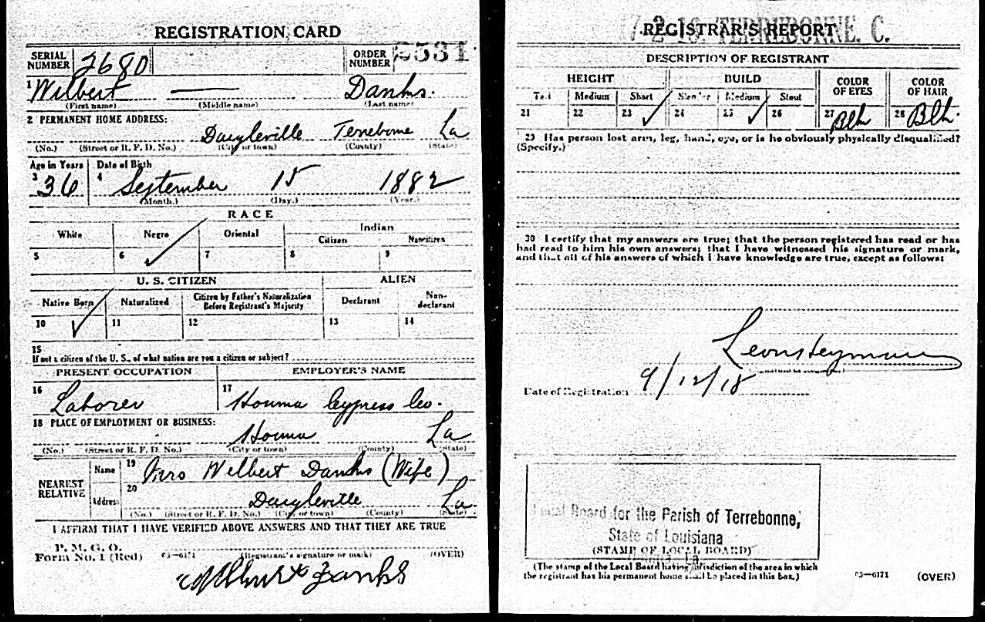 REGISTRATION CARD
SERIAL NUMBER 2680 ORDER NUMBER
1 Wilbert Danks.
(First name) (Middle name) (Last name)
2 PERMANENT HOME ADDRESS:
Daigleville Terrebonne La
(No.) (Street or R. F. D. No.) (City or town) (County) (State)
Age in Years Date of Birth
3 36 4 September 15 1882
(Month.) (Day.) (Year.)
RACE
White Negro Oriental Indian
Citizen Noncitizen
5 6 ✓ 7 8 9
U. S. CITIZEN ALIEN
Native Born Naturalized Citizen by Father's Naturalization Before Registrant's Majority Declarant Non-declarant
10 ✓ 11 12 13 14
15
If not a citizen of the U. S., of what nation are you a citizen or subject?
PRESENT OCCUPATION EMPLOYER'S NAME
16 Laborer 17 Houma Cypress Co.
18 PLACE OF EMPLOYMENT OR BUSINESS:
Houma La
(No.) (Street or R. F. D. No.) (City or town) (County) (State)
NEAREST RELATIVE Name 19 Mrs Wilbert Danks (Wife)
Address 20 Daigleville La
(No.) (Street or R. F. D. No.) (City or town) (County) (State)
I AFFIRM THAT I HAVE VERIFIED ABOVE ANSWERS AND THAT THEY ARE TRUE
P. M. G. O.
Form No. 1 (Red) 03—6171 (Registrant's signature or mark) (OVER)
REGISTRAR'S REPORT
DESCRIPTION OF REGISTRANT
HEIGHT BUILD COLOR OF EYES COLOR OF HAIR
Tall Medium Short Slender Medium Stout
21 22 23 ✓ 24 25 ✓ 26 27 Blk 28 Blk.
29 Has person lost arm, leg, hand, eye, or is he obviously physically disqualified?
(Specify.)
30 I certify that my answers are true; that the person registered has read or has
had read to him his own answers; that I have witnessed his signature or mark,
and that all of his answers of which I have knowledge are true, except as follows:
Date of Registration 9/12/18
Local Board for the Parish of Terrebonne,
State of Louisiana
(STAMP OF LOCAL BOARD)
(The stamp of the Local Board having jurisdiction of the area in which
the registrant has his permanent home shall be placed in this box.)
03—6171 (OVER)